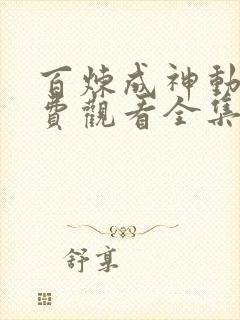 百炼成神動
費觀看全集
舒享